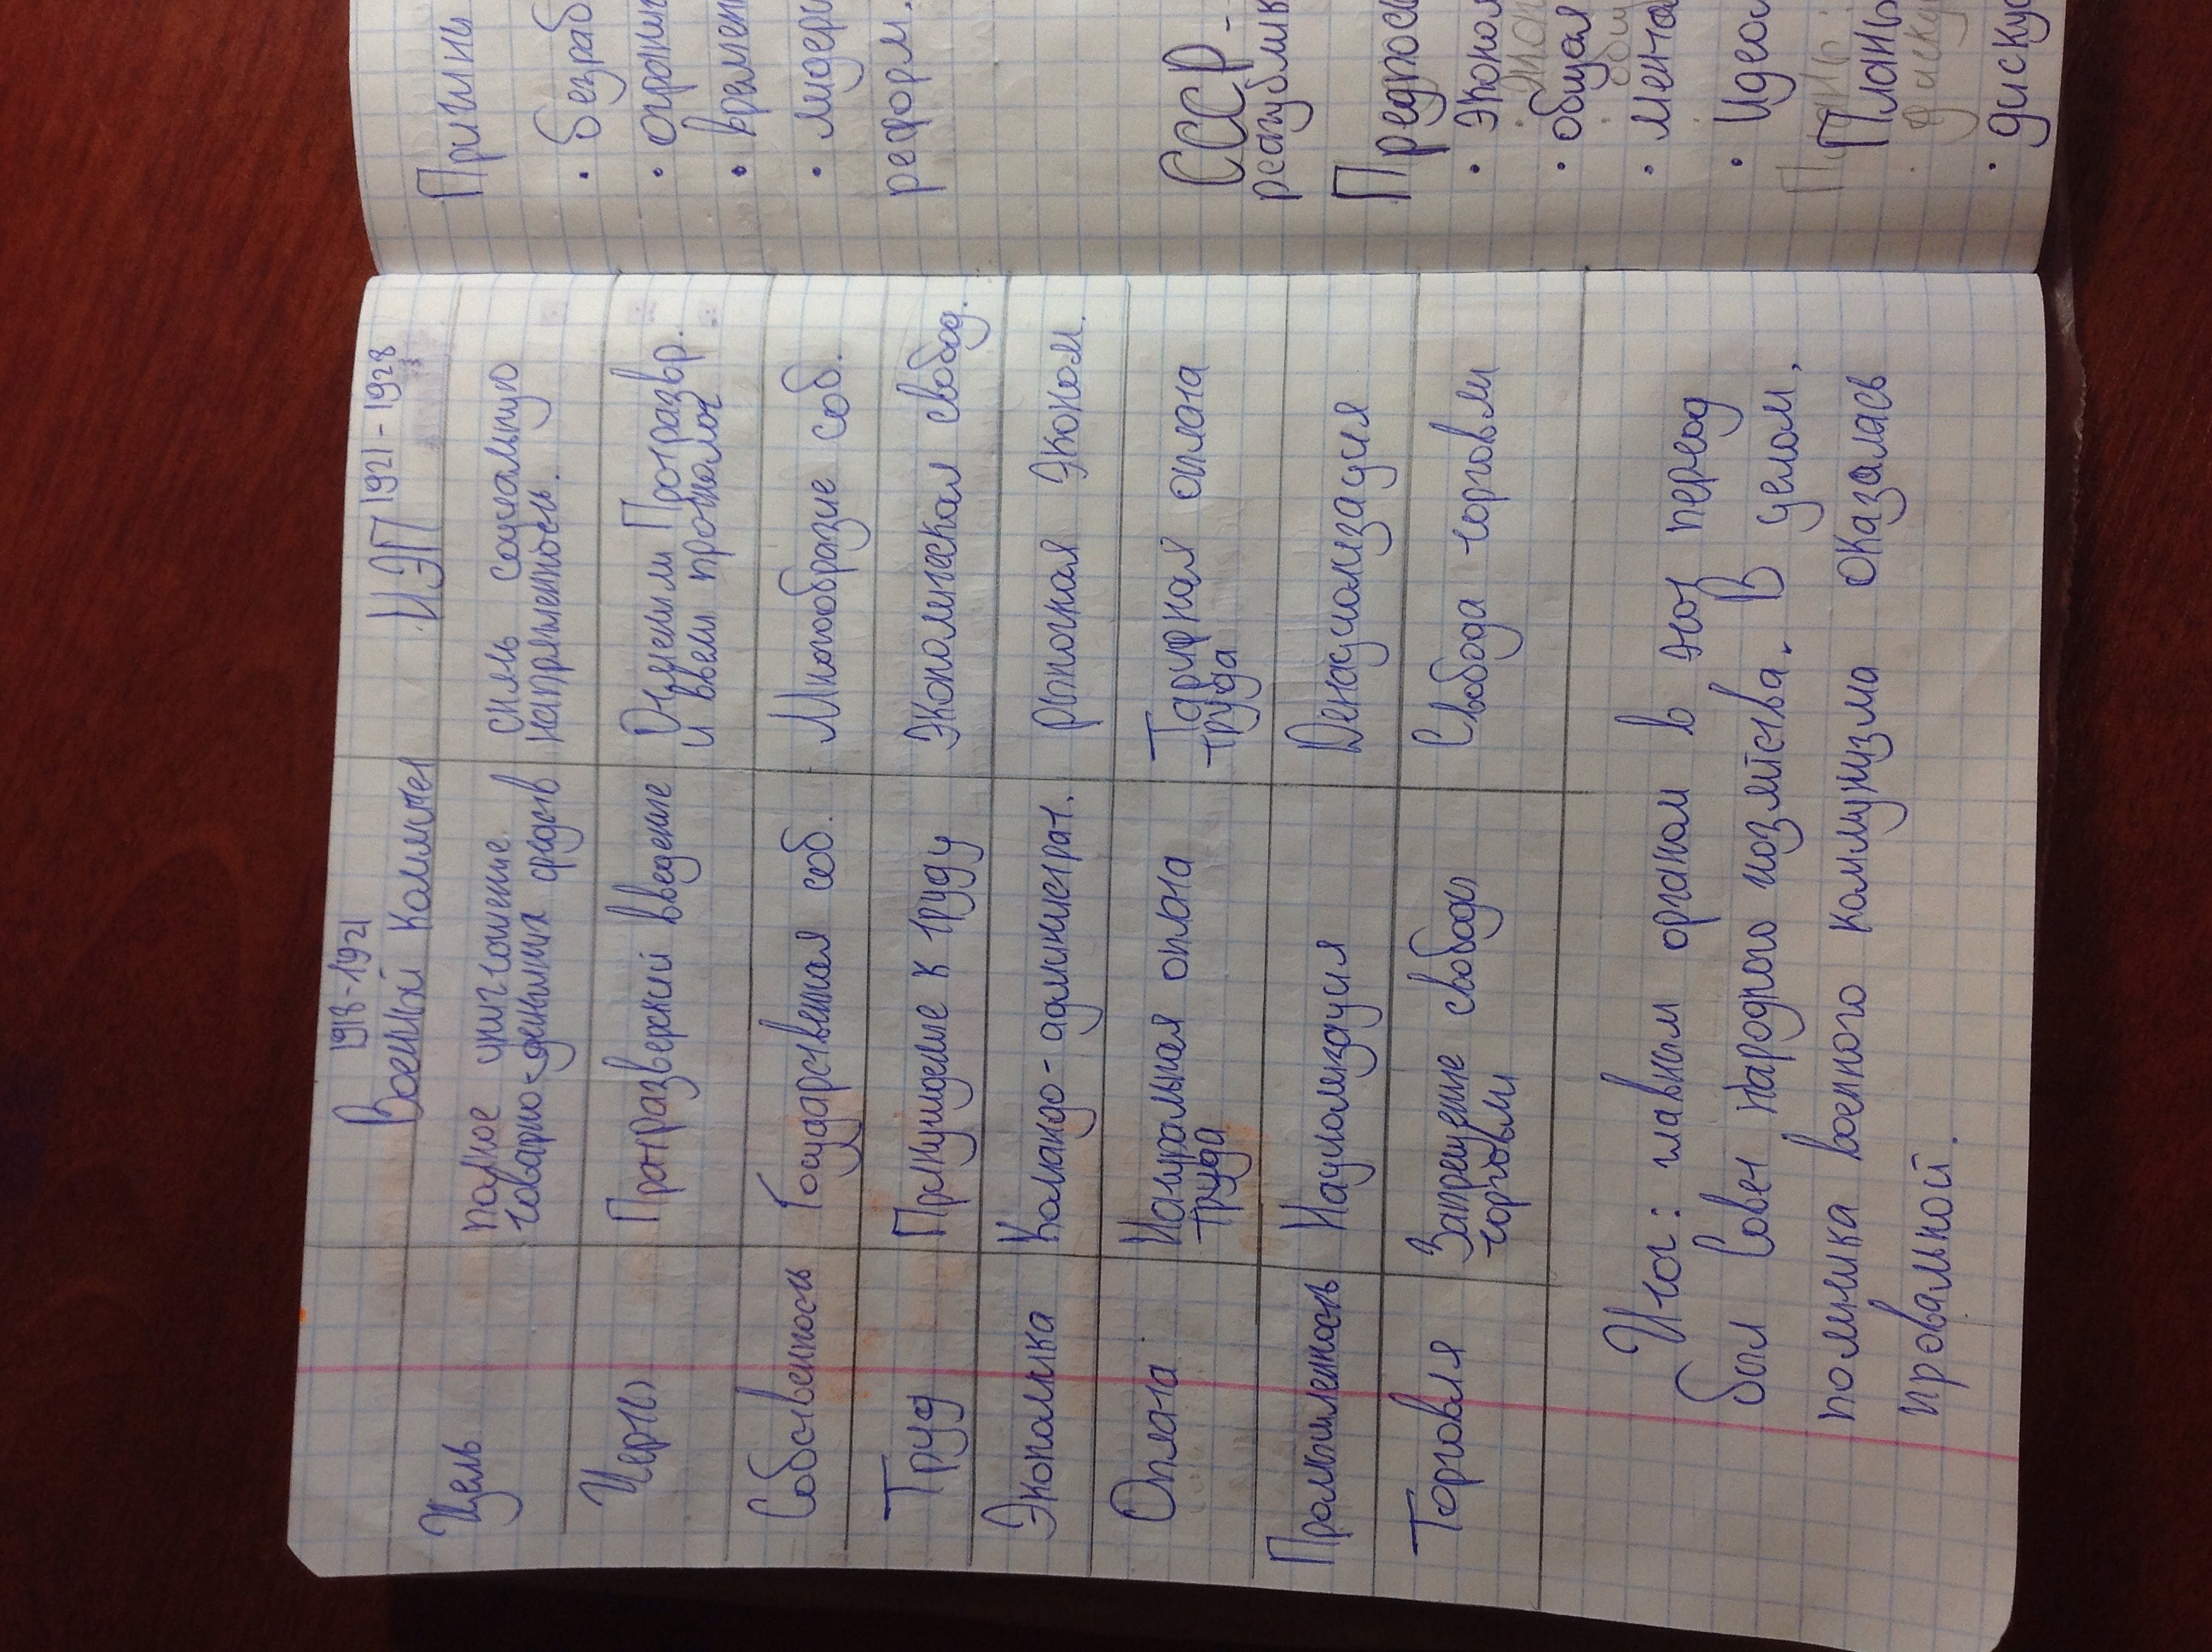 1918-1921
Военный Коммунизм
НЭП 1921-1928
Цель
полное уничтожение
товарно-денежных средств
снять социальную
напряженность.
Черты
Протразверский введение
Отменили Протразвр.
и ввели протналог
Собственность
Государственная соб.
Многообразие соб.
Труд
Принуждение к труду
Экономическая свобод.
Экономика
Командо-администрат.
рыночная эконом.
Оплата
Натуральная оплата
труда
Тарифная оплата
труда
Промышленность
Национализация
Денационизация
Торговля
Запрещение свободы
торговли
Свобода торговли
Итог: главным органом в этот период
был Совет Народного хозяйства. В целом,
политика военного коммунизма оказалась
провальной.
Причины
• безраб
• огранич
• времен
• лидеры
реформ.
СССР -
республик
Предпос
• Эконом
• общая
• мента
• Идеол
Планы
• дискус